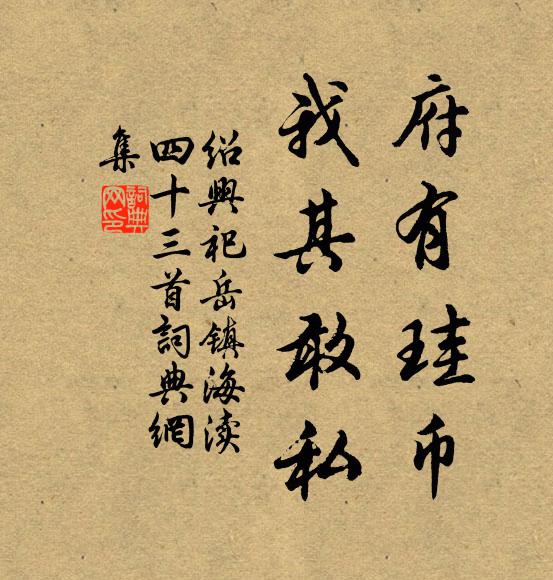 府有珪币
我其敢私
绍興祀岳镇海渎
四十三首詞典網
集
詞典
网印